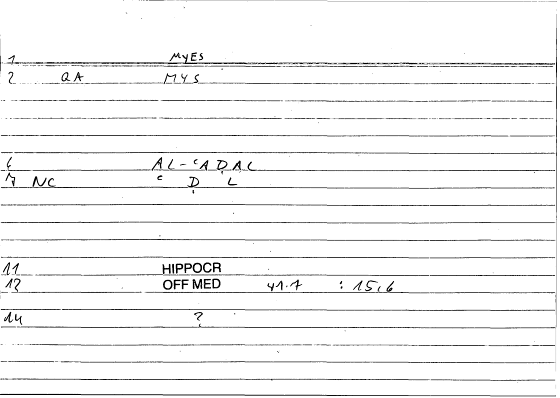 1 MYES
2 QA MYS
6 AL-ʿAḌAL
7 NC ʿ Ḍ L
11 HIPPOCR
12 OFF MED 41.7 : 15,6
14 ?